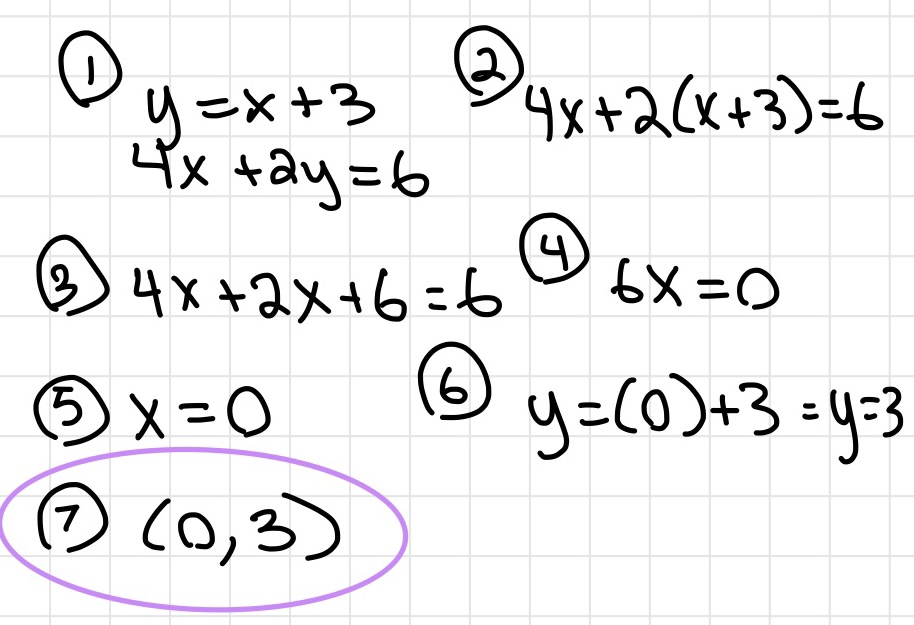 ① y=x+3
4x+2y=6
② 4x+2(x+3)=6
③ 4x+2x+6=6
④ 6x=0
⑤ x=0
⑥ y=(0)+3=y=3
⑦ (0,3)